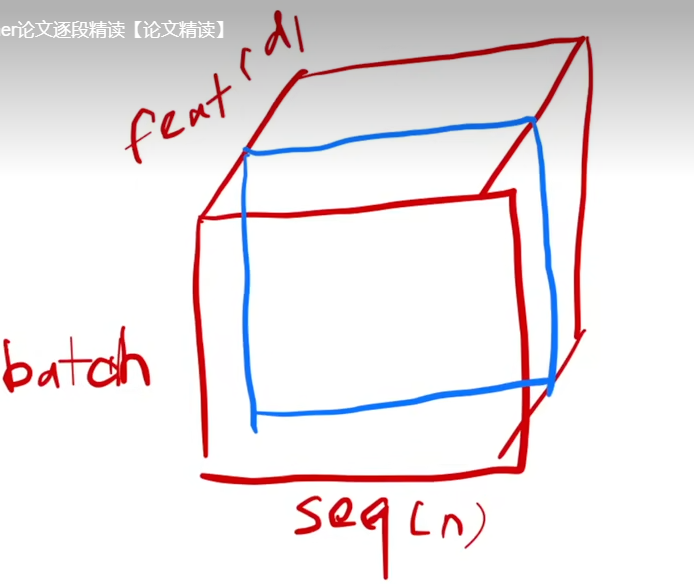 er论文逐段精读【论文精读】
feat(d)
batch
seq(n)